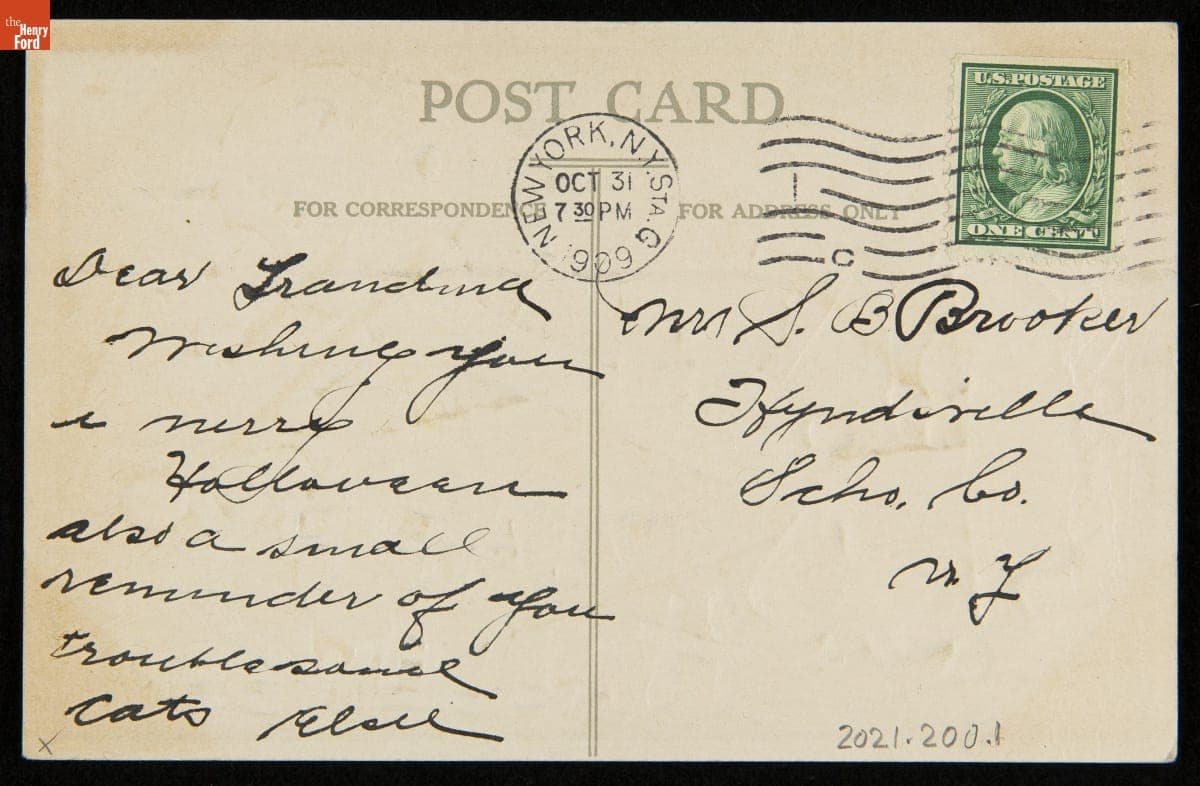 the
Henry
Ford
POST CARD
U.S. POSTAGE
ONE CENT
NEW YORK, N.Y. STA. G
OCT 31
7 30 PM
1909
C
FOR CORRESPONDENCE
FOR ADDRESS ONLY
Dear Grandma
Wishing you
a merry
Holloween
also a small
reminder of you
troublesome
cats Elsie
Mrs S. B Brooker
Hyndsville
Scho. Co.
N. Y
2021.200.1
x